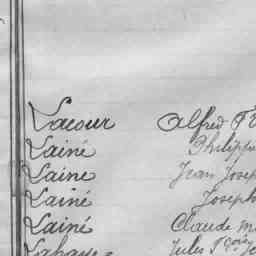 Lacour Alfred
Lainé Philippe
Laine Jean Josep
Lainé Joseph
Lainé Claude
Jules